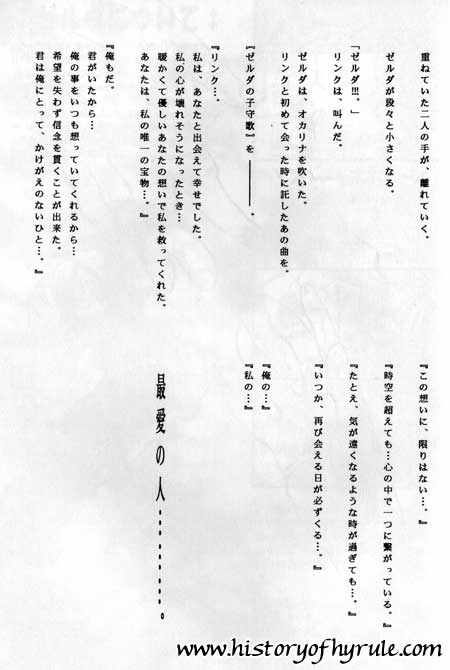 重ねていた二人の手が、離れていく。
ゼルダが段々と小さくなる。
「ゼルダ!!!。」
リンクは、叫んだ。
ゼルダは、オカリナを吹いた。
リンクと初めて会った時に託したあの曲を。
『ゼルダの子守歌』を――――。
『リンク…。
私は、あなたと出会えて幸せでした。
私の心が壊れそうになったとき…
暖かくて優しいあなたの想いで私を救ってくれた。
あなたは、私の唯一の宝物…。』
『俺もだ。
君がいたから…
俺の事をいつも想っていてくれるから…
希望を失わず信念を貫くことが出来た。
君は俺にとって、かけがえのないひと…。』
『この想いに、限りはない…。』
『時空を超えても…心の中で一つに繋がっている。』
『たとえ、気が遠くなるような時が過ぎても…。』
『いつか、再び会える日が必ずくる…。』
『俺の…』
『私の…』
最愛の人…………。
www.historyofhyrule.com